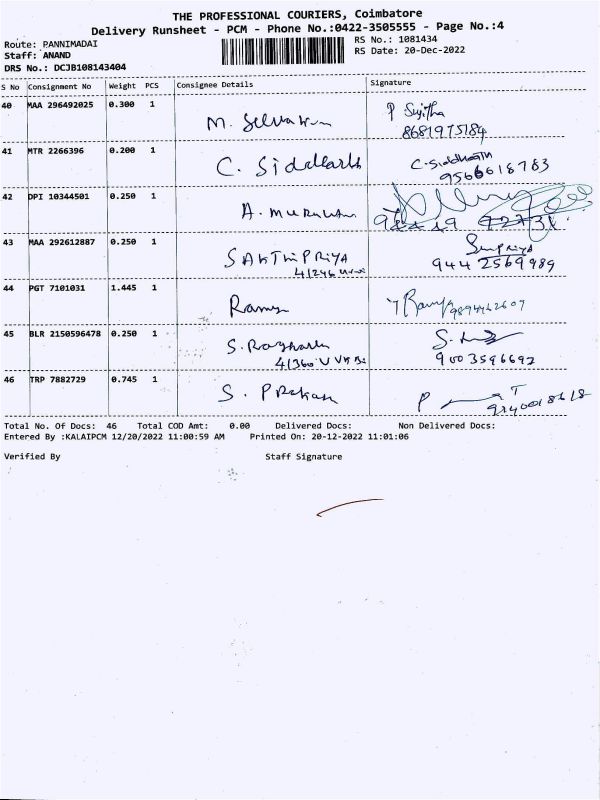 THE PROFESSIONAL COURIERS, Coimbatore
Delivery Runsheet - PCM - Phone No.:0422-3505555 - Page No.:4
Route: PANNIMADAI RS No.: 1081434
Staff: ANAND RS Date: 20-Dec-2022
DRS No.: DCJB108143404
S No Consignment No Weight PCS Consignee Details Signature
40 MAA 296492025 0.300 1 P Sujitha
M. Selvakum 8681975184
41 MTR 2266396 0.200 1 C. Siddharth C. Siddharth
9566618783
42 DPI 10344501 0.250 1 A. Murugan
43 MAA 292612887 0.250 1 SAKTHIPRIYA
41246 9442569989
44 PGT 7101031 1.445 1 Ramya Ramya 9894462607
45 BLR 2150596478 0.250 1 S. Raghavan S.
41360 V 9003596692
46 TRP 7882729 0.745 1 S. Prakash P T
Total No. Of Docs: 46 Total COD Amt: 0.00 Delivered Docs: Non Delivered Docs:
Entered By :KALAIPCM 12/20/2022 11:00:59 AM Printed On: 20-12-2022 11:01:06
Verified By Staff Signature